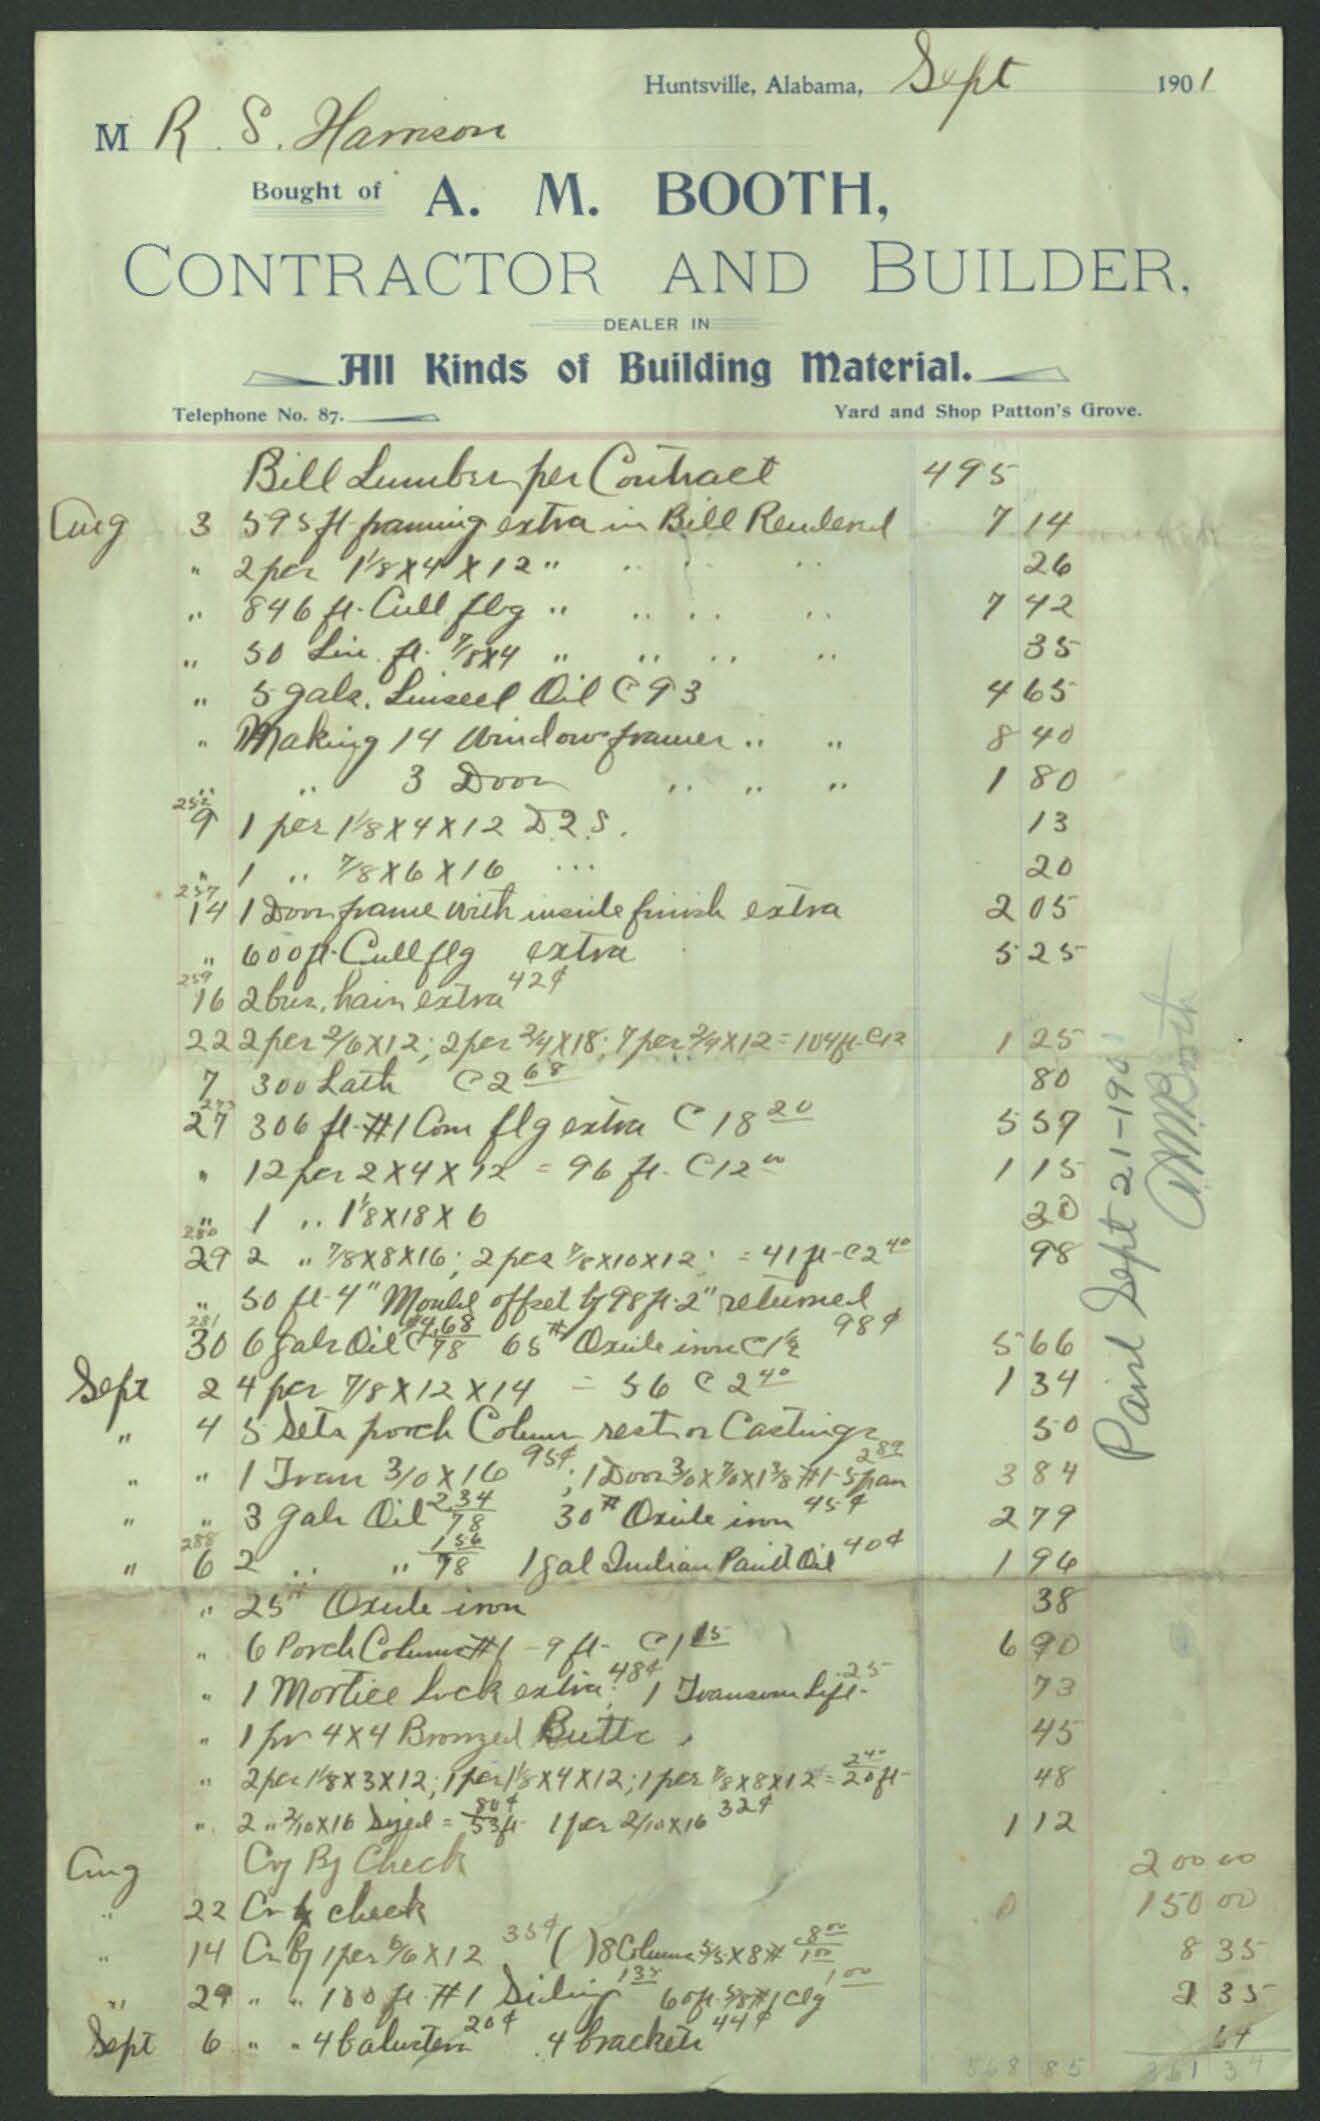 Huntsville, Alabama, Sept 1901
M R. S. Harrison
Bought of A. M. BOOTH,
CONTRACTOR AND BUILDER,
DEALER IN
All Kinds of Building Material.
Telephone No. 87. Yard and Shop Patton's Grove.
Bill Lumber per Contract 495
Aug 3 595 ft framing extra in Bill Rendered 7 14
" 2 pcs 1 1/8 X 4 X 12 " " " " 26
" 846 ft. Cull flbg " " " " 7 42
" 50 Lin. ft. 7/8 X 4 " " " " 35
" 5 gals. Linseed Oil @ 93 4 65
" Making 14 Window frames " " 8 40
" " 3 Door " " " 1 80
252
9 1 pcs 1 1/8 X 4 X 12 D 2 S. 13
" 1 " 7/8 X 6 X 16 " 20
257
14 1 Door frame with inside finish extra 2 05
" 600 ft. Cull flg extra 5 25
259
16 2 bus. hair extra 42¢
22 2 pcs 2/6 X 12; 2 pcs 2/4 X 18; 7 pcs 2/4 X 12 = 104 ft. @ 12 1 25
7 300 Lath @ 2 68 80
273
27 306 ft. #1 Com flg extra @ 18 20 5 57
" 12 pcs 2 X 4 X 12 = 96 ft. @ 12 00 1 15
" 1 " 1 1/8 X 18 X 6 20
280
29 2 " 7/8 X 8 X 16; 2 pcs 7/8 X 10 X 12 = 41 ft @ 2 40 98
" 50 ft 4" Mould offset by 98 ft. 2" returned
281
30 6 gals Oil @ 78 4.68 65# Oxide iron @ 1 1/2 98¢ 5 66
Sept 2 4 pcs 7/8 X 12 X 14 = 56 @ 2 40 1 34
" 4 5 Sets porch Column rest or Castings 50
" " 1 Tran 3/0 X 16 95¢; 1 Door 3/0 X 7/0 X 1 3/8 #1 - 5 pan 2 89 3 84
" " 3 gals Oil 2.34 78 30# Oxide iron 45¢ 2 79
288
" 6 2 " " 1 56 78 1 gal Indian Paint Oil 40¢ 1 96
" 25# Oxide iron 38
" 6 Porch Column #1 - 9 ft. @ 1 15 6 90
" 1 Mortice Lock extra 48¢ 1 Transom Lift 25 73
" 1 pr 4 X 4 Bronzed Butts 45
" 2 pcs 1 1/8 X 3 X 12; 1 pcs 1 1/8 X 4 X 12; 1 pcs 7/8 X 8 X 12 = 20 ft 2 40 48
" 2 " 2/10 X 16 = 53 ft 80¢ 1 pcs 2/10 X 16 32¢ 1 12
Aug Cr By Check 200 00
" 22 Cr by check 150 00
" 14 Cr By 1 pcs 6/6 X 12 35¢ ( ) 8 Columns 5/5 X 8 # 8 00 1 00 8 35
" 29 " " 100 ft. #1 Siding 1 35 60 ft. 5/8 #1 Clg 1 00 2 35
Sept 6 " " 4 balusters 20¢ 4 brackets 44¢ 64
568 85 361 34
Paid Sept 21-1901
A M Booth